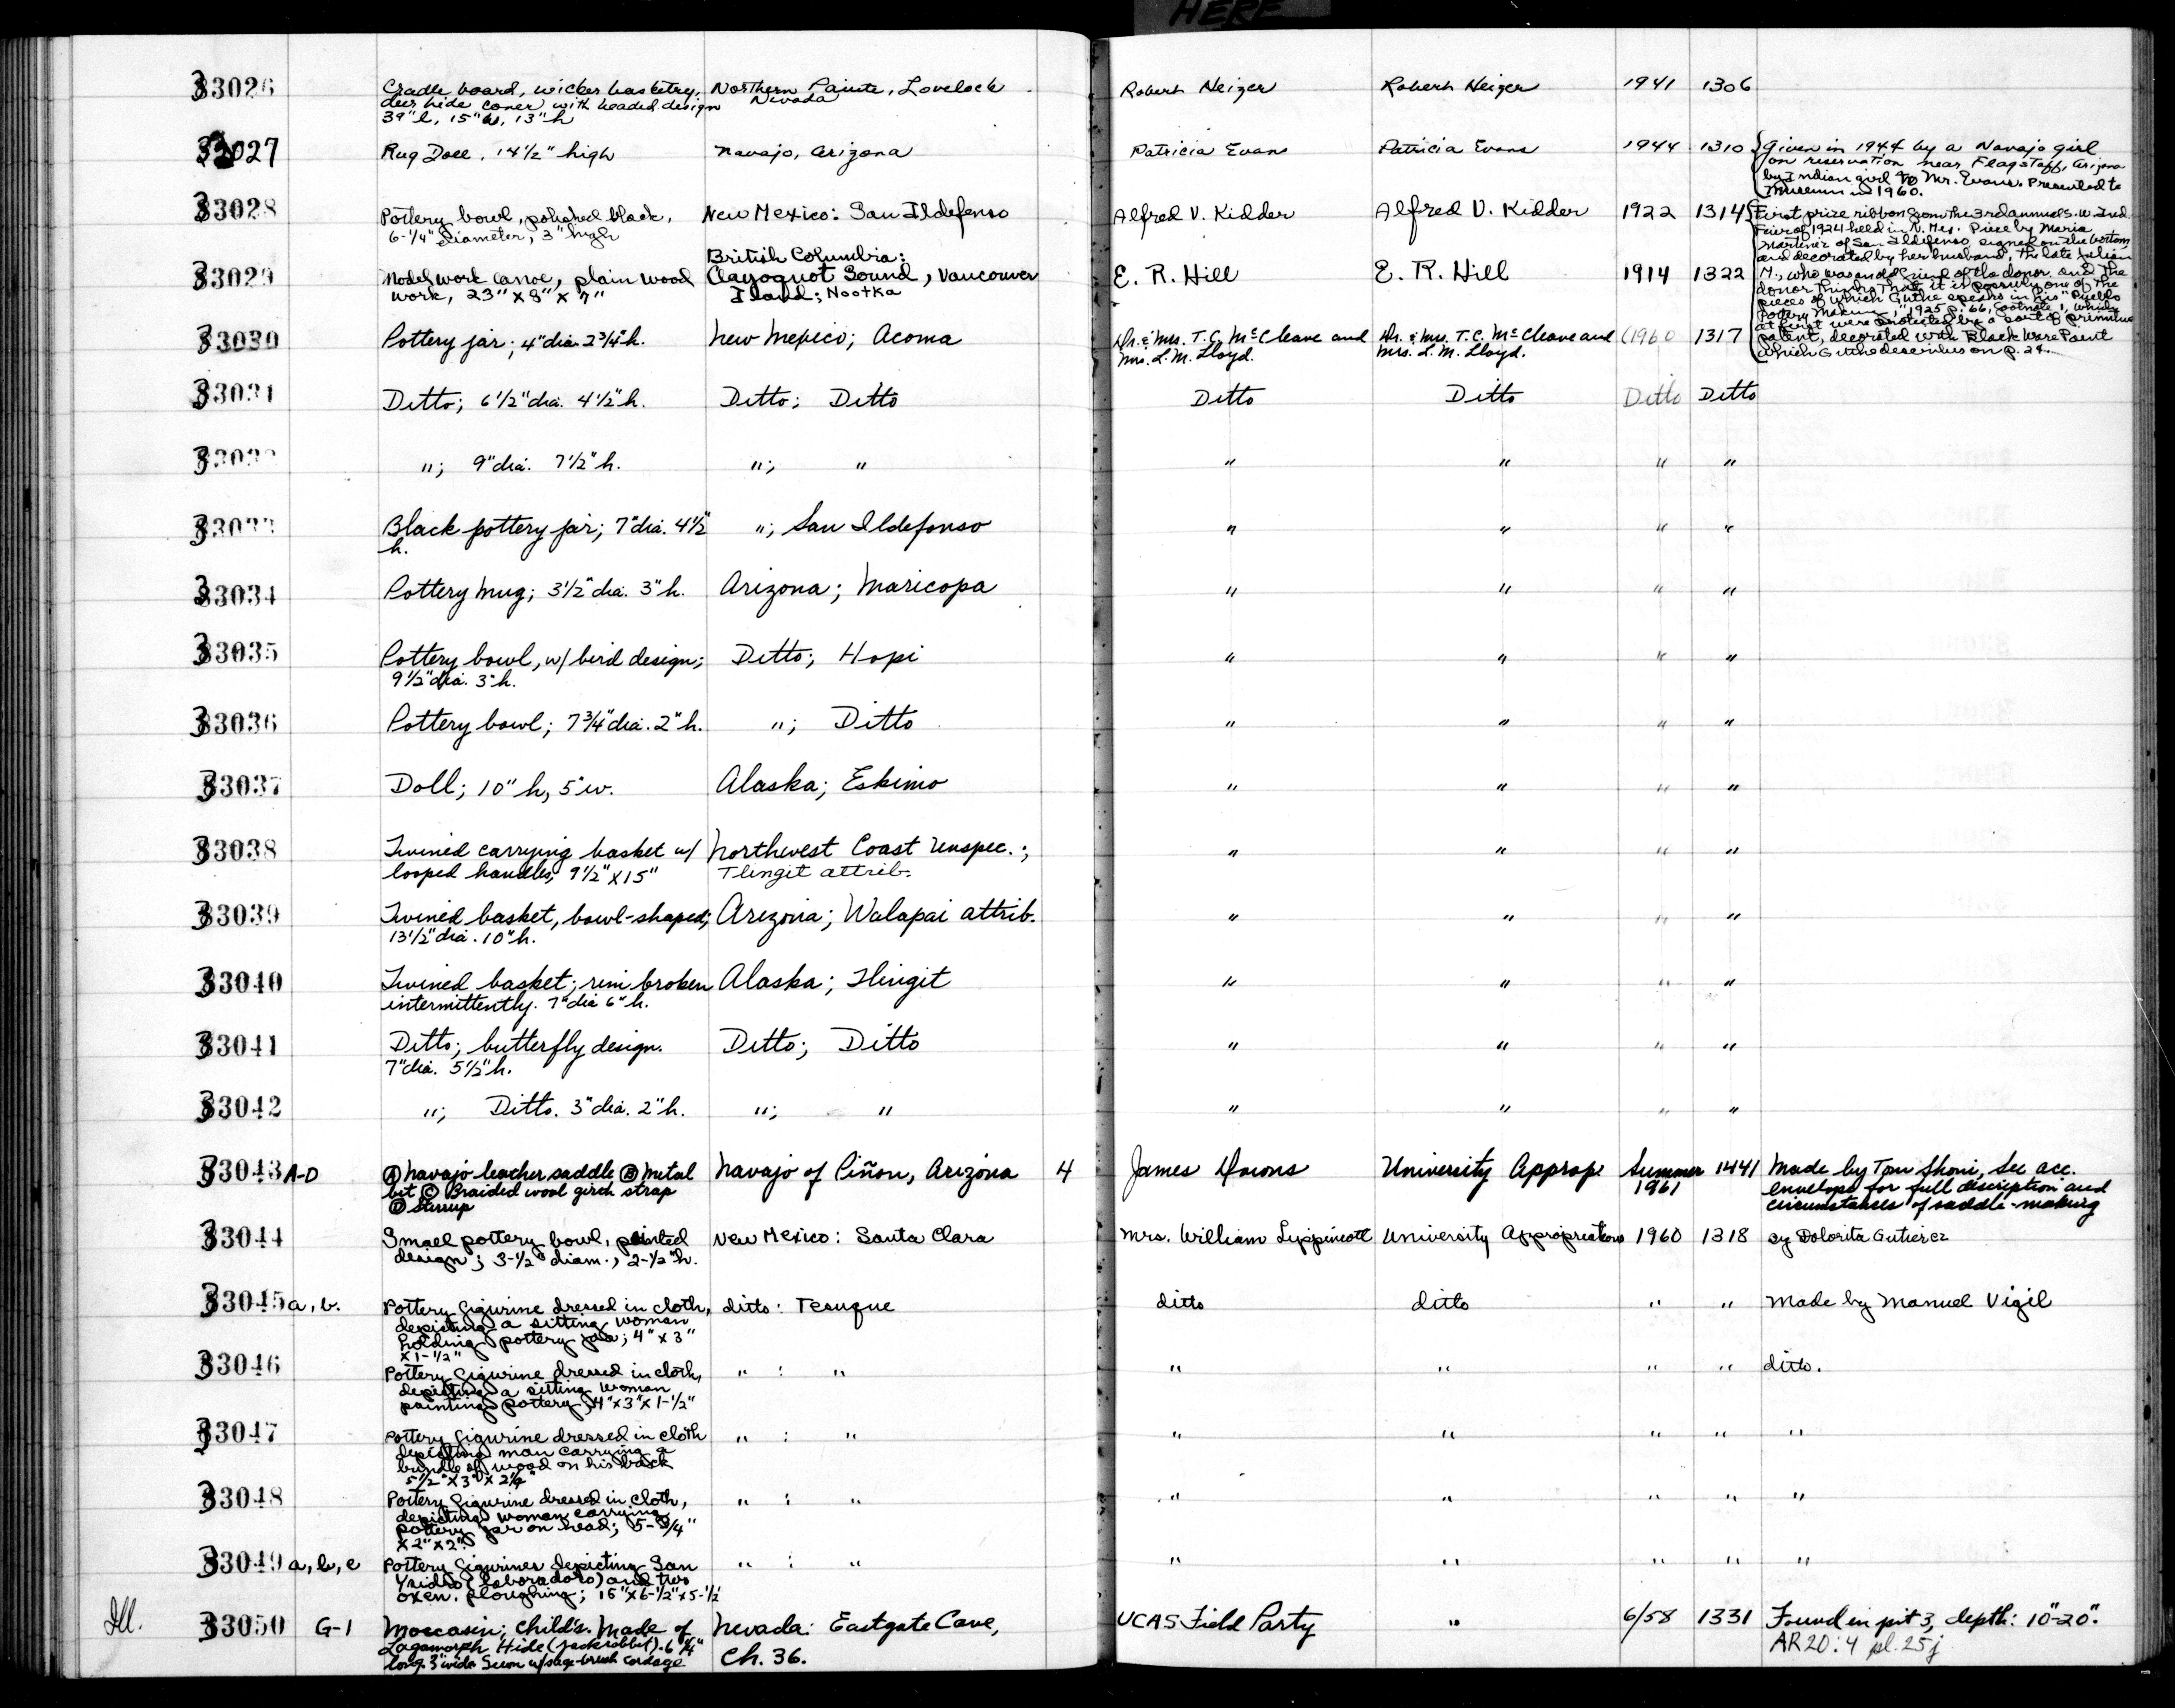 HERE
33026 Cradle board, wicker basketry, Northern Paiute, Lovelock Robert Heizer Robert Heizer 1941 1306
deer hide cover with beaded design Nevada
39" l, 15" w, 13" h
33027 Rug Doll, 14 1/2" high Navajo, Arizona Patricia Evans Patricia Evans 1944 1310 Given in 1944 by a Navajo girl
on reservation near Flagstaff, Arizona
by Indian girl to Mr. Evans. Presented to
Museum in 1960.
33028 Pottery bowl, polished black, New Mexico: San Ildefonso Alfred V. Kidder Alfred V. Kidder 1922 1314 First prize ribbon from the 3rd annual S.W. Ind.
6-1/4" diameter, 3" high
Fair of 1924 held in N. Mex. Piece by Maria
Martinez of San Ildefonso signed on the bottom,
and decorated by her husband, the late Julian
M., who was an old friend of the donor. and the
donor thinks that it is possibly one of the
pieces of which Guthe speaks in his "Pueblo
Pottery Making," 1925 p. 66, footnote 1, which
at first were protected by a sort of primitive
patent, decorated with Black Ware Paint
which Guthe describes on p. 24.
33029 Model work canoe, plain wood British Columbia: E. R. Hill E. R. Hill 1914 1322
work, 23" x 8" x 7" Clayoquot Sound, Vancouver
Island; Nootka
33030 Pottery jar; 4" dia. 2 3/4" h. New Mexico; Acoma Dr. & Mrs. T. C. McCleave and Dr. & Mrs. T. C. McCleave and (1960 1317
Mrs. L. M. Lloyd. Mrs. L. M. Lloyd.
33031 Ditto; 6 1/2" dia. 4 1/2" h. Ditto; Ditto Ditto Ditto Ditto Ditto
"; 9" dia. 7 1/2" h. "; " " " " "
Black pottery jar; 7" dia. 4 1/2" "; San Ildefonso " " " "
h.
33034 Pottery mug; 3 1/2" dia. 3" h. Arizona; Maricopa " " " "
33035 Pottery bowl, w/ bird design; Ditto; Hopi " " " "
9 1/2" dia. 3" h.
33036 Pottery bowl; 7 3/4" dia. 2" h. "; Ditto " " " "
33037 Doll; 10" h, 5" w. Alaska; Eskimo " " " "
33038 Twined carrying basket w/ Northwest Coast Unspec.; " " " "
looped handles, 9 1/2" x 15" Tlingit attrib.
33039 Twined basket, bowl-shaped; Arizona; Walapai attrib. " " " "
13 1/2" dia. 10" h.
33040 Twined basket; rim broken Alaska; Tlingit " " " "
intermittently. 7" dia 6" h.
33041 Ditto; butterfly design. Ditto; Ditto " " " "
7" dia. 5 1/2" h.
33042 "; Ditto. 3" dia. 2" h. "; " " " " "
33043 A-D Ⓐ Navajo leather saddle Ⓑ Metal Navajo of Piñon, Arizona 4 James Downs University Approp. Summer 1441 Made by Tom Shoni, See acc.
bit Ⓒ Braided wool girth strap 1961 envelope for full description and
Ⓓ Stirrup circumstances of saddle-making
33044 Small pottery bowl, painted New Mexico: Santa Clara Mrs. William Lippincott University Appropriations 1960 1318 By Dolorita Gutierez
design; 3-1/2" diam., 2-1/2" h.
33045 a, b. Pottery figurine dressed in cloth, ditto: Tesuque ditto ditto " " Made by Manuel Vigil
depicting a sitting woman
holding pottery jar; 4" x 3"
x 1-1/2"
33046 Pottery figurine dressed in cloth, " : " " " " " ditto.
depicting a sitting woman
painting pottery, 4" x 3" x 1-1/2"
33047 Pottery figurine dressed in cloth " : " " " " " "
depicting man carrying a
bundle of wood on his back
5 1/2" x 3" x 2 1/4"
33048 Pottery figurine dressed in cloth, " : " " " " " "
depicting woman carrying
pottery jar on head; 5-3/4"
x 2" x 2"
33049 a, b, c Pottery figurines depicting San " : " " " " " "
Ysidro (Laboradoro) and two
oxen. ploughing; 15" x 6-1/2" x 5-1/2
Ill. 33050 G-1 Moccasin; child's. Made of Nevada: Eastgate Cave, UCAS Field Party " 6/58 1331 Found in pit 3, depth: 10"-20".
Lagomorph Hide (jackrabbit). 6 1/4" Ch. 36. AR20:4 pl. 25j
long. 3" wide Sewn w/sage-brush cordage